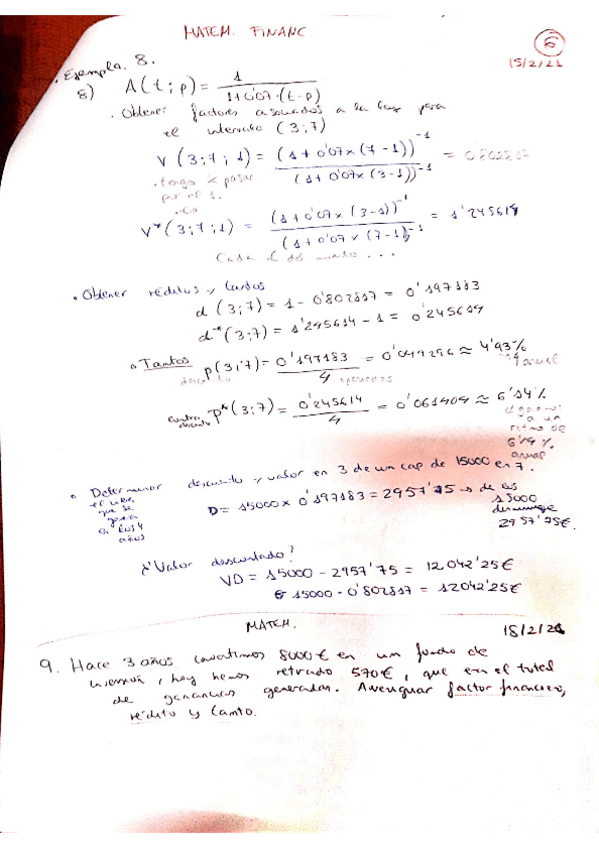 MATEM. FINANC
6
15/2/21
. Ejemplo 8.
8) A(t;p) = 1 / 1+0'07·(t-p)
. Obtener factores asociados a la ley para
el intervalo (3;7)
V(3;7;1) = (1+0'07x(7-1))^-1 / (1+0'07x(3-1))^-1 = 0'802817
. tengo q pasar
por el 1.
V*(3;7;1) = (1+0'07x(3-1))^-1 / (1+0'07x(7-1))^-1 = 1'245614
Cada € de
. Obtener réditos y tantos
d(3;7) = 1 - 0'802817 = 0'197183
d*(3;7) = 1'245614 - 1 = 0'245614
Tantos p(3;7) = 0'197183 / 4 = 0'049296 ≈ 4'93%
descuento
anual
contra
descuento
p*(3;7) = 0'245614 / 4 = 0'061404 ≈ 6'14%
a un
ritmo de
6'14%
anual
. Determinar descuento y valor en 3 de un cap de 15000 en 7.
que se
en los 4
años
D = 15000 x 0'197183 = 2957'75 → de los
15000
2957'75€.
¿Valor descontado?
VD = 15000 - 2957'75 = 12042'25€
15000 · 0'802817 = 12042'25€
MATEM.
18/2/21
9. Hace 3 años invertimos 8000€ en un fondo de
inversión, hoy hemos retirado 570€, que es el total
de ganancias generadas. Averiguar factor financiero,
rédito y tanto.